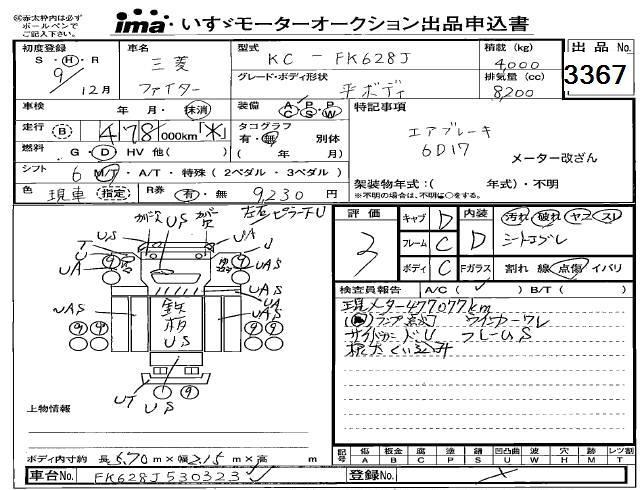 ※赤太枠内は必ず
ボールペンで
ご記入下さい。
ima いすゞモーターオークション出品申込書
初度登録 車名 型式 KC-FK628J 積載(kg) 4,000 出品No.
S・H・R 9/12月 三菱 ファイター グレード・ボディ形状 平ボディ 排気量(cc) 8200 3367
車検 年 月・抹消 装備 A/C P/S P/W 特記事項
走行 B 478,000km「*」 タコグラフ 有・無 別体 エアブレーキ
燃料 G・D HV 他( ) ( 年 月) 6D17 メーター改ざん
シフト 6 M/T・A/T・特殊(2ペダル・3ペダル)
架装物年式:( 年式)・不明
色 現車(指定) R券 有・無 9,230円 ※不明の場合は、不明に○をする。
ガ欠 US ガ欠 左右ピラーTU
US UA
T J
U
UA UAS
UA
UAS UAS
鉄板
US
UT US
上物情報
ボディ内寸約 長5.70m×幅2.15m×高 m
評価 3 キャブ D 内装 D 汚れ 破れ ヤコ スレ
フレーム C
ボディ C Fガラス 割れ 線 点傷 イバリ
検査員報告 A/C( ✓ ) B/T( )
現メーター477077km
ランプ点灯 ウインカーワレ
サイドガードU フレームS
記号 傷A 板金B 腐C 塗P 錆S 凹凸曲U 波W 穴H 跡M レンズ割T
車台No. FK628J530323✓ 登録No.